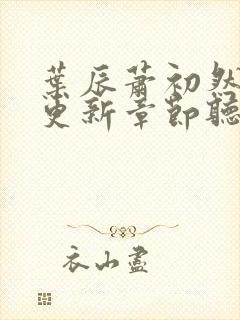 葉辰蕭初然
更新章節聽
衣山盡